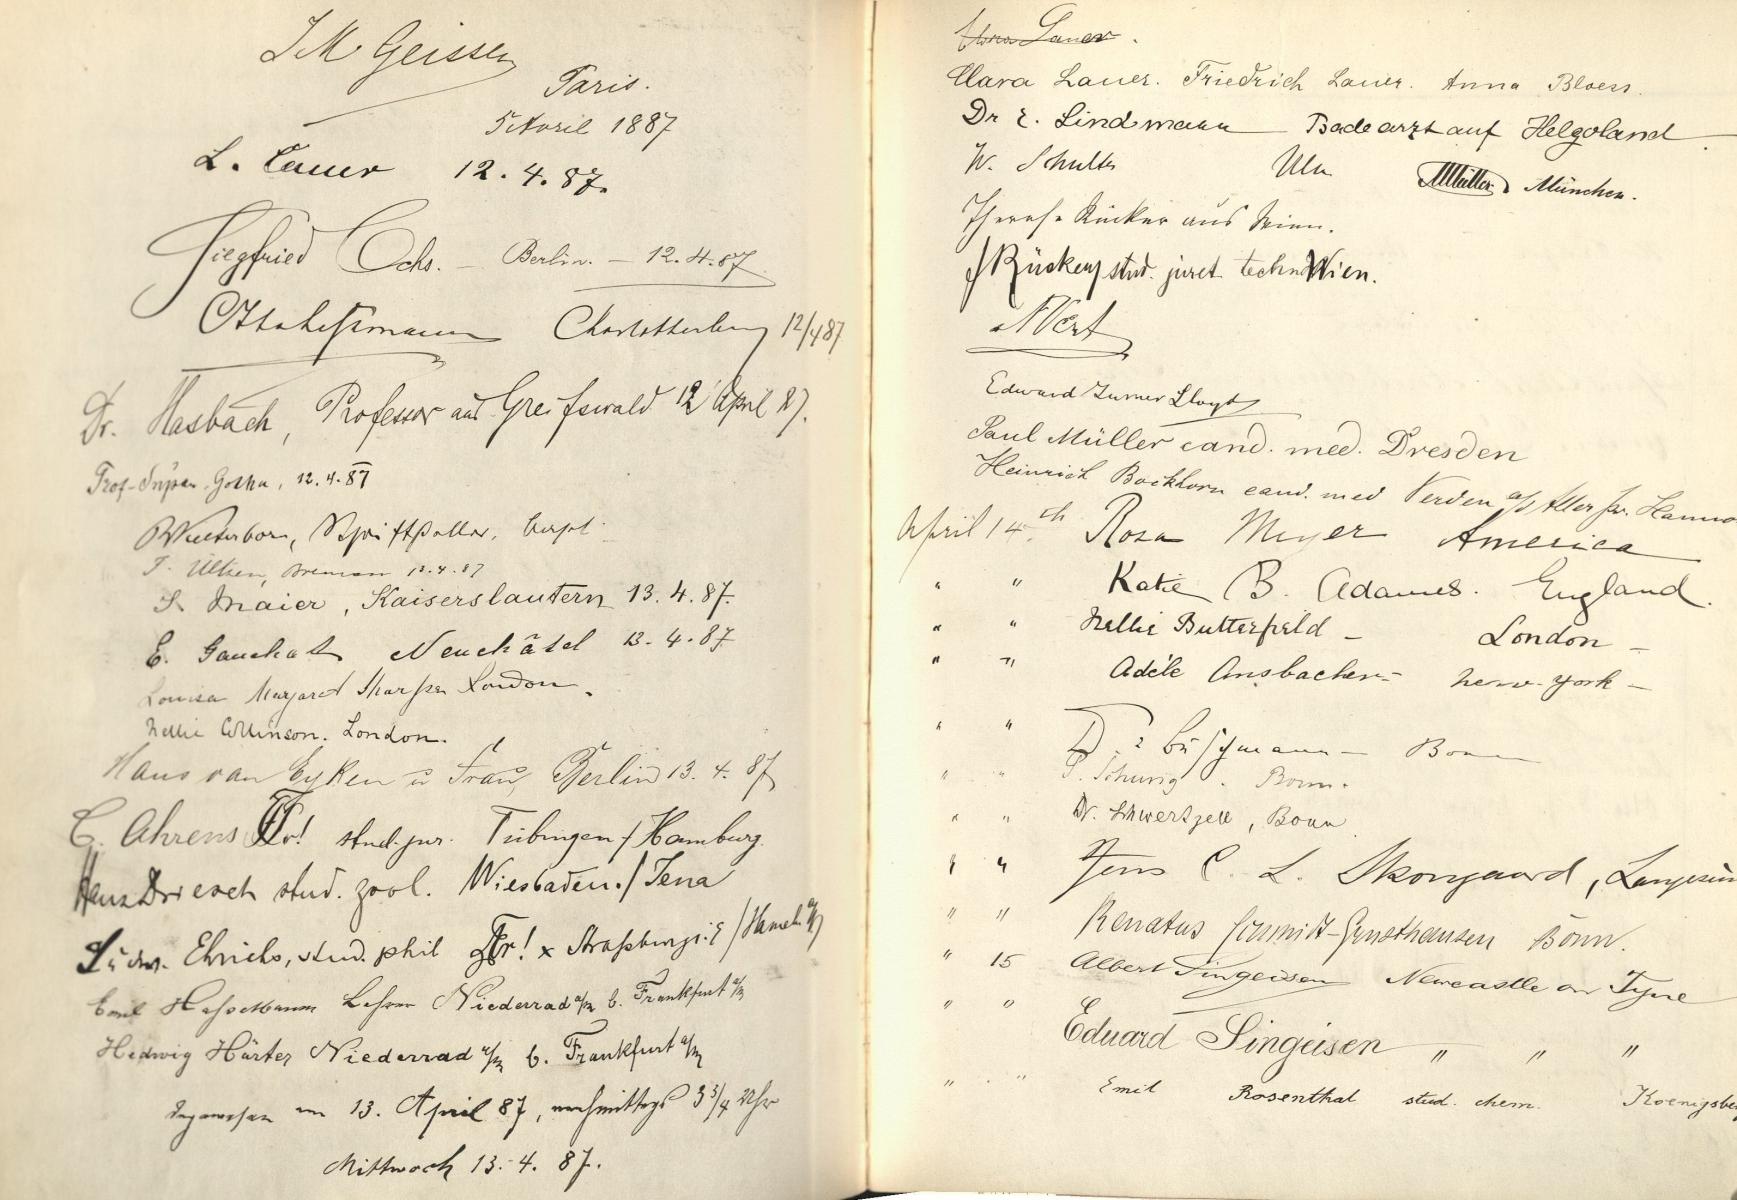 J M Geissen
Paris.
5 Avril 1887
L. Lauer 12.4.87.
Siegfried Ochs. – Berlin. – 12.4.87
Charlottenburg 12/4 87
Dr. Hasbach, Professor aus Greifswald 12 April 87.
Prof. Supan. Gotha, 12.4.87
Schriftsteller,
Bremen 12.4.87
S. Maier, Kaiserslautern 13.4.87.
E. Gauchat Neuchâtel 13.4.87
Louisa Margaret Sharpe London.
Nellie Collinson. London.
Hans van Eyken u Frau, Berlin 13.4.87
C. Ahrens Fr! stud. jur. Tübingen / Hamburg.
Hans Driesch stud. zool. Wiesbaden. / Jena
Ludw. Ehrichs, stud. phil Fr! x Straßburg i. E / Hameln
Emil Lehrer Niederrad a/M b. Frankfurt a/M
Hedwig Härter Niederrad a/M b. Frankfurt a/M
am 13. April 87, nachmittags 3 3/4 Uhr
Mittwoch 13.4.87.
Lauer.
Clara Lauer. Friedrich Lauer. Anna Bloess.
Dr E. Lindmann Badearzt auf Helgoland
W. Schultes Ulm Müller München.
Therese Rücker aus Wien.
Rücker, stud. jur et techn Wien.
Edward Turner Lloyd
Paul Müller cand. med. Dresden
Heinrich Bockhorn cand. med Verden a/d Aller
April 14th Rosa Meyer America
" " Katie B. Adames. England.
" " Nellie Butterfield – London –
" " Adèle Ansbacher – New-York –
" " Bonn
" " Schurig. Bonn.
" " Dr. Schwertzell, Bonn
" " Jens C. L. Skougaard,
" " Renatus Schmidt-Ernsthausen Bonn.
" 15 Albert Singeisen Newcastle on Tyne
" " Eduard Singeisen " " "
" " Emil Rosenthal stud. chem.